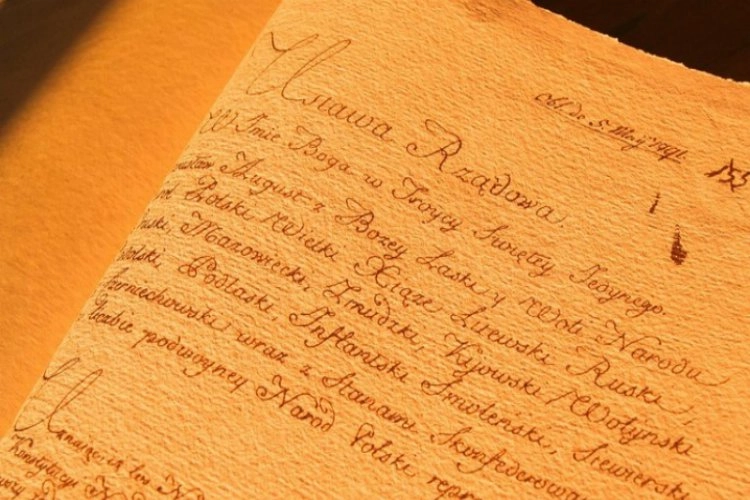 Obl. de 5. Maij 1791.
155
Ustawa Rządowa.
W Imie Boga w Troycy Swiętey Jedynego.
nisław August z Bozey Łaski y Woli Narodu
Polski Wielki Xiąże Litewski Ruski,
ruski, Mazowiecki, Zmudzki, Kijowski Wołyński
dolski, Podlaski, Inflantski Smoleński, Siewiersk
Czerniechowski; wraz z Stanami Skonfederowa
liczbie podwoyney Narod Polski repr
Uznaiąc, iż los N
Konstytucyi N